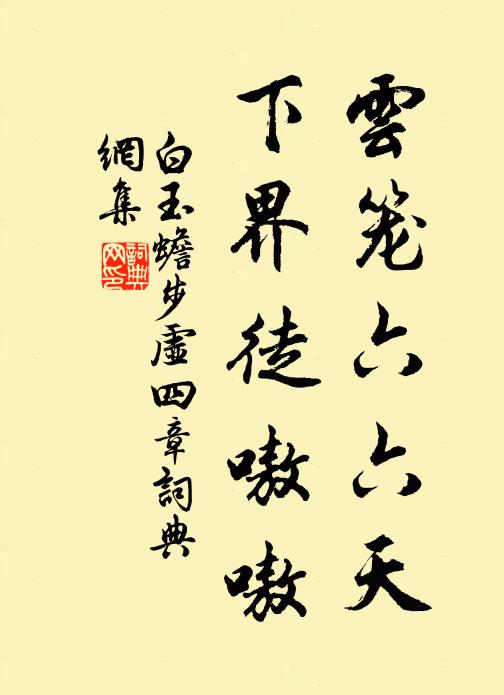 雲笼六六天
下界徒嗷嗷
白玉蟾步虛四章詞典
網集
詞典
网印